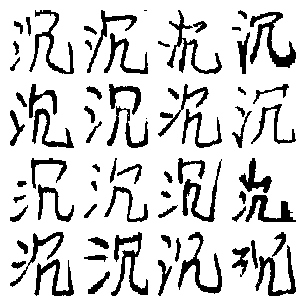 沉沉沉沉
沉沉沉沉
沉沉沉沉
沉沉沉沉